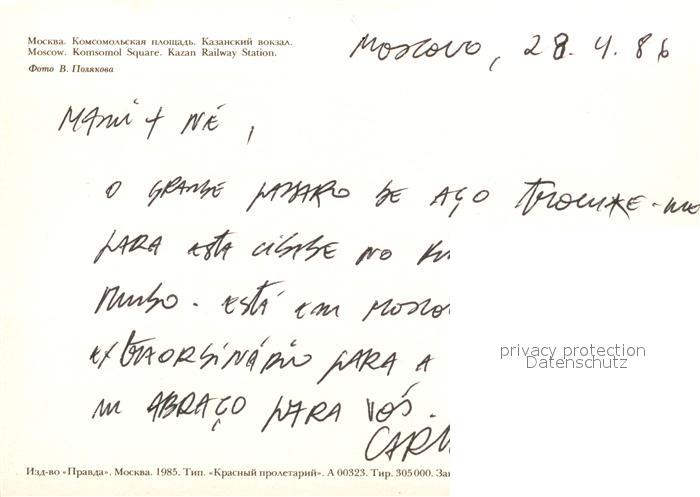 Москва. Комсомольская площадь. Казанский вокзал.
Moscow. Komsomol Square. Kazan Railway Station.
Фото В. Полякова
Moscovo, 28.4.86
MAMI + NÉ,
O GRANDE PASSARO DE AÇO TROUXE-ME
PARA ESTA CIDADE NO
MUNDO. ESTÁ EM MOSCO
EXTRAORDINÁRIO PARA A
UM ABRAÇO PARA VÓS.
CARM
privacy protection
Datenschutz
Изд-во «Правда». Москва. 1985. Тип. «Красный пролетарий». А 00323. Тир. 305000. Зак